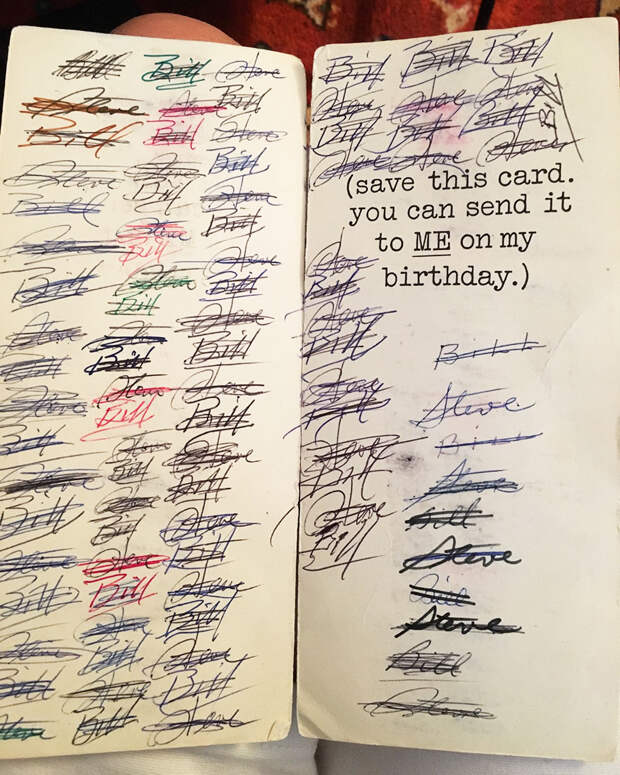 Bill
Steve
Bill
Steve
Bill
Steve
Bill
Steve
Bill
Steve
Bill
Steve
Bill
Steve
Bill
Steve
Bill
Steve
Bill
Steve
Bill
Steve
Bill
Steve
Bill
Steve
Bill
Steve
Bill
Steve
Bill
Steve
Bill
Steve
Bill
Steve
Bill
Steve
Bill
Steve
Bill
Steve
Bill
Steve
Bill
Steve
Bill
Steve
Bill
Steve
Bill
Steve
Bill
Steve
Bill
Steve
Bill
Steve
Bill
Steve
Bill
Steve
Bill Bill Bill
Steve Steve Steve
Bill Bill Bill Bill
Steve Steve Steve
(save this card.
you can send it
to ME on my
birthday.)
Steve
Bill
Steve
Bill
Steve
Bill
Steve
Bill
Steve
Bill
Bill
Steve
Bill
Steve
Bill
Steve
Bill
Steve
Bill
Steve